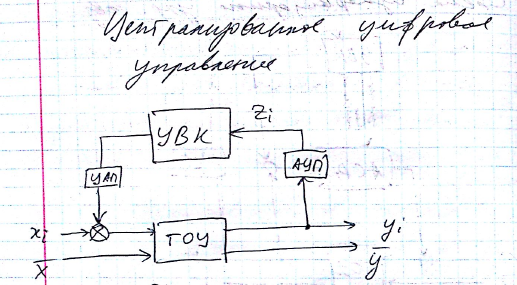 Централизованное цифровое
управление
Zi
УВК
ЦАП
АЦП
xi
ТОУ
yi
X
y